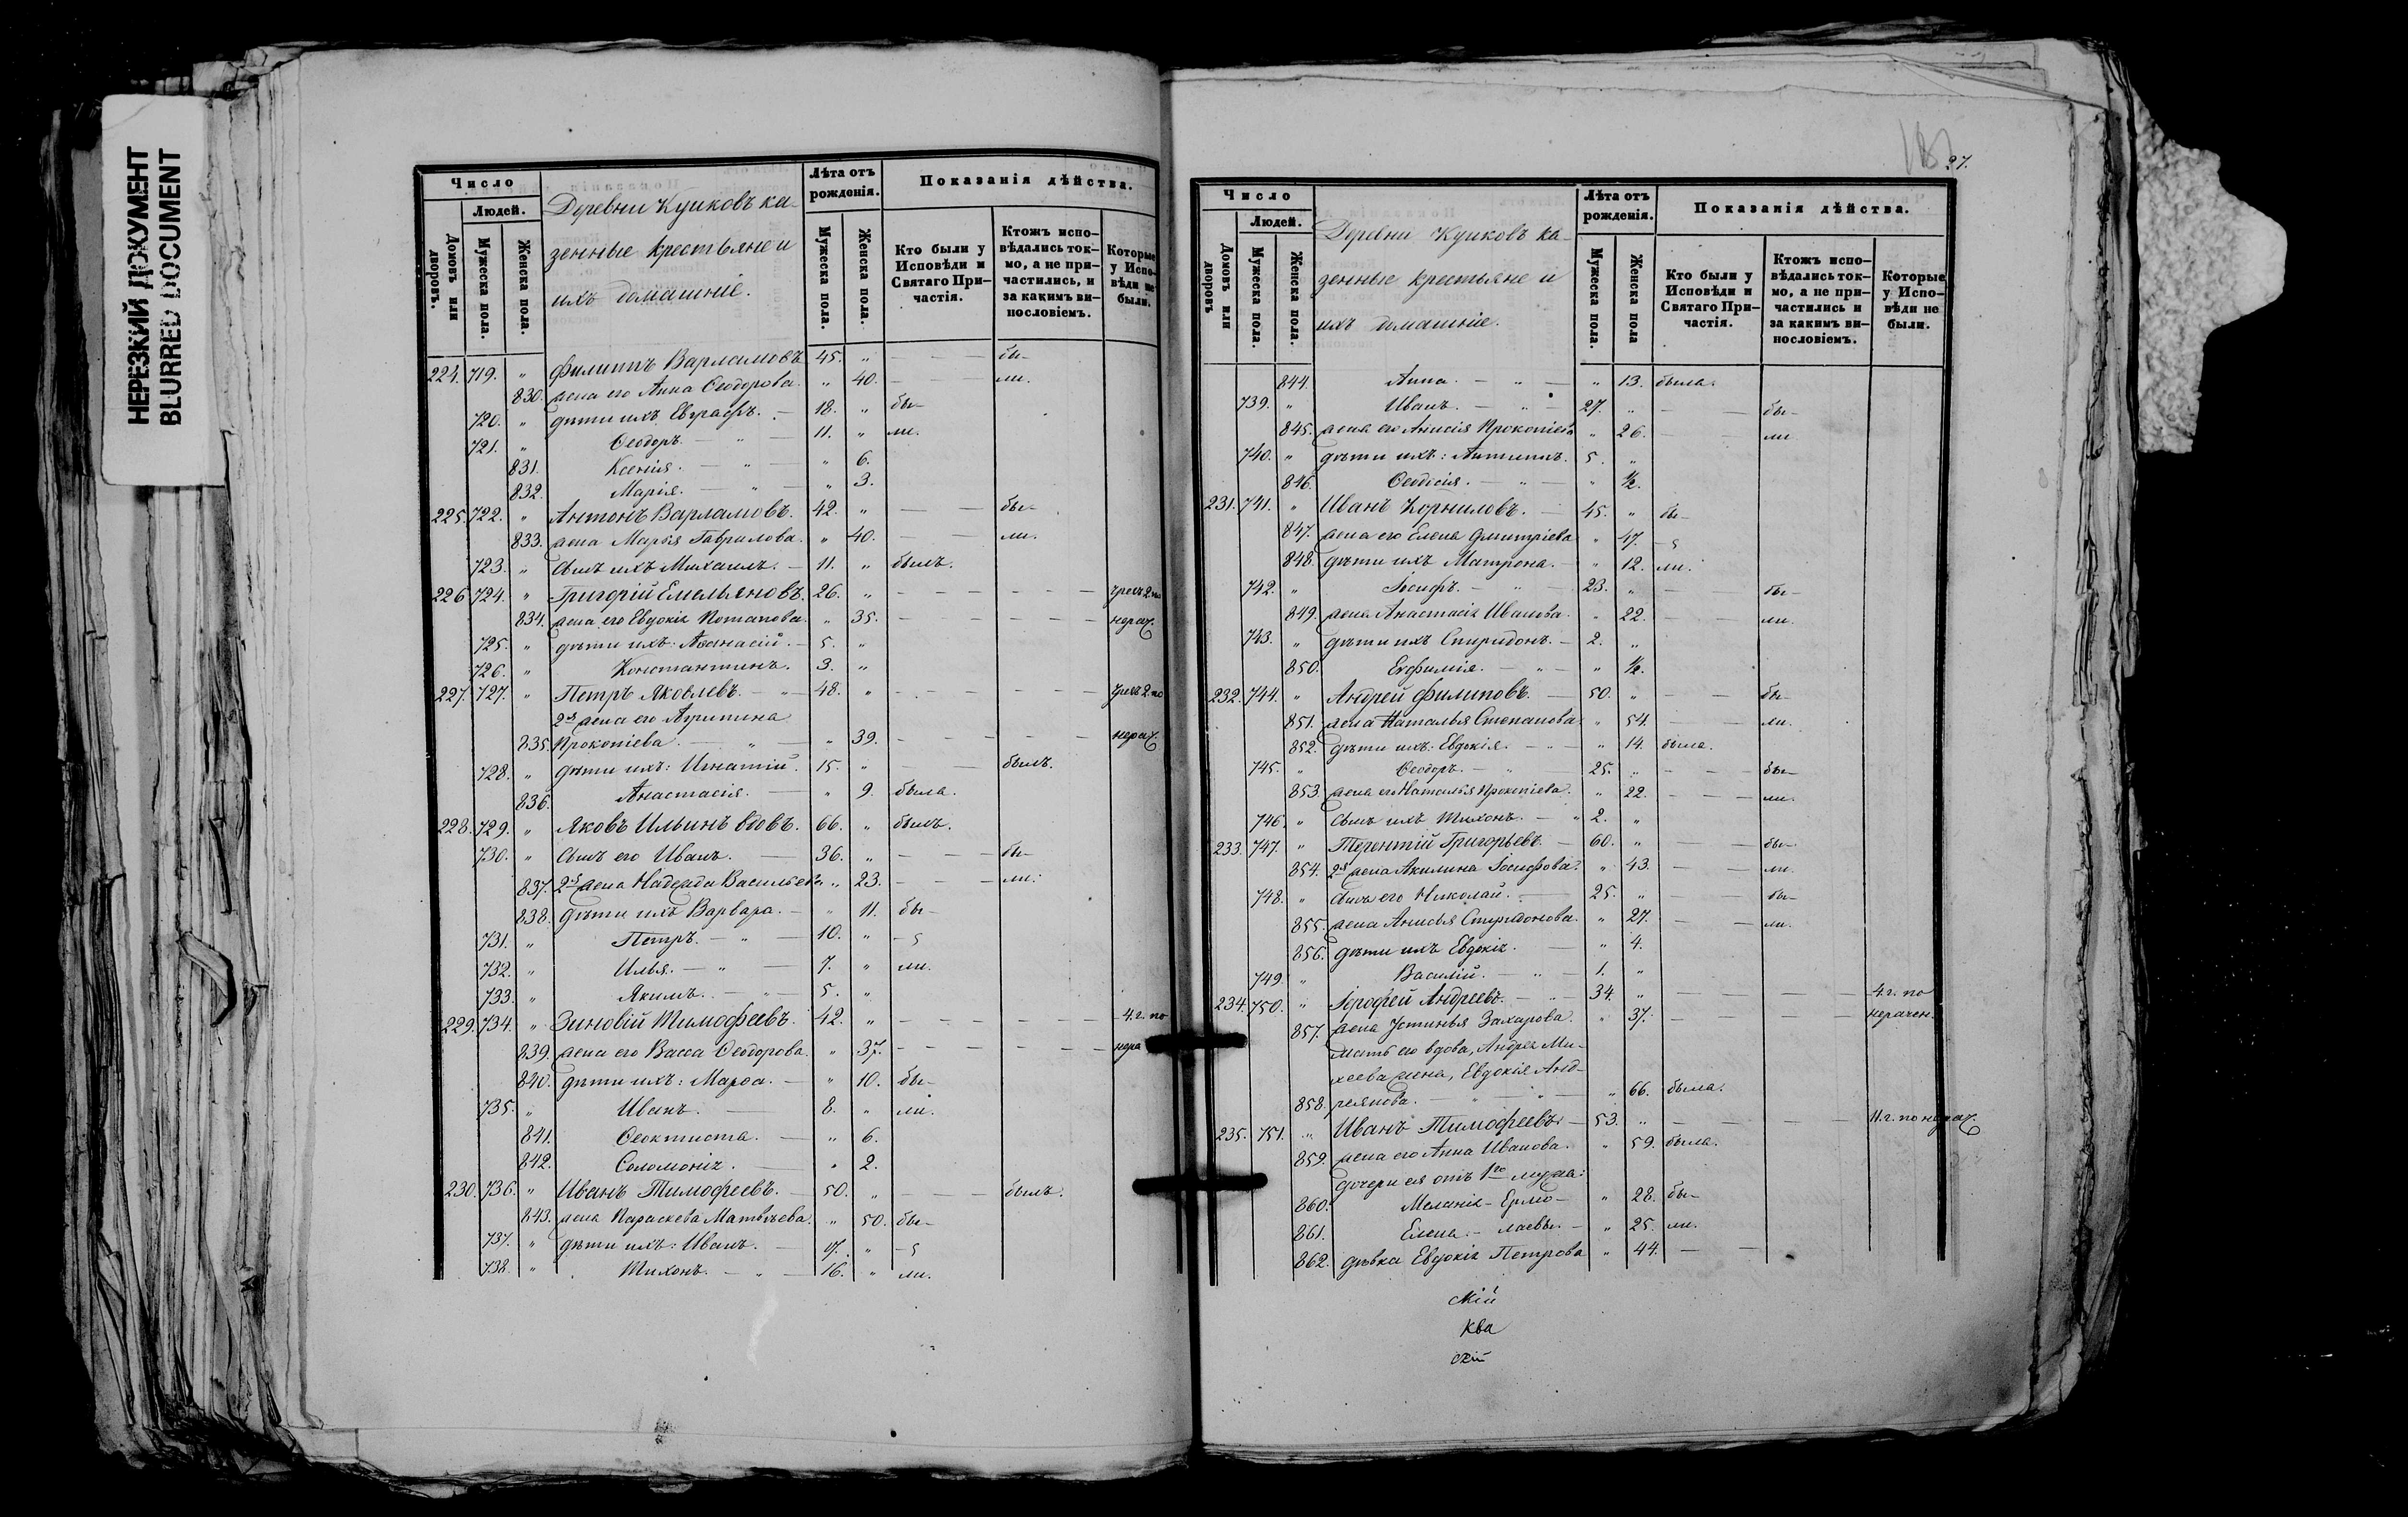 НЕРЕЗКИЙ ДОКУМЕНТ
BLURRED DOCUMENT
Число
Людей.
Домовъ или дворовъ.
Мужеска пола.
Женска пола.
Деревни Куликовъ ка-
зенные крестьяне и
ихъ домашніе.
Лѣта отъ рожденія.
Мужеска пола.
Женска пола.
Показанія дѣйства.
Кто были у Исповѣди и Святаго При-частія.
Ктожъ испо-вѣдались ток-мо, а не при-частились, и за какимъ ви-нословіемъ.
Которые у Испо-вѣди не были.
224. 719. " Филиппъ Варламовъ 45. " — — бы-
830. жена его Анна Ѳеодорова. " 40. — — ли.
720. " дѣти ихъ Евграфъ. — 18. " бы-
721. " Ѳеодоръ. — " — 11. " ли.
831. Ксенія. — " " 6.
832. Марія. " — " 3.
225. 722. " Антонъ Варламовъ. 42. " — — бы-
833. жена Марія Гаврилова. " 40. — — ли.
723. " сынъ ихъ Михаилъ. — 11. " былъ.
226 724. " Григорій Емельяновъ. 26. " — — — — — — чрезъ 2 по
834. жена его Евдокія Потапова. " 35. — — — — — — нерач.
725. " дѣти ихъ: Аѳанасій. — 5. "
726. " Константинъ. 3. "
227. 727. " Петръ Яковлевъ. — " — 48. " — — — — — — чрезъ 2. по
2я жена его Агрипина
835. Прокопіева. — " — " 39. — — — — — нерач.
728. " дѣти ихъ: Игнатій. 15. " — — былъ.
836. Анастасія. — " 9. была.
228. 729. " Яковъ Ильинъ вдовъ. 66. " былъ.
730. " сынъ его Иванъ. — 36. " — — — бы-
837. 2я жена Надежда Васильева " 23. — — — ли.
838. дѣти ихъ Варвара. — " 11. бы-
731. " Петръ. — " — 10. " — ѕ
732. " Илья. — " — 7. " ли.
733. " Якимъ. — " — 5. "
229. 734. " Зиновій Тимофеевъ. 42. " — — — — — — 4. г. по
839. жена его Васса Ѳеодорова. " 37. — — — — — — нера
840. дѣти ихъ: Марѳа. — " 10. бы-
735. " Иванъ. — 8. " ли.
841. Ѳеоктиста. — " 6.
842. Соломонія. — " 2.
230. 736. " Иванъ Тимофеевъ. — 50. " — — былъ.
843. жена Параскева Матвѣева. " 50. бы-
737. " дѣти ихъ: Иванъ. — 17. " — ѕ
738. " Тихонъ. — " — 16. " ли.
27.
Число
Людей.
Домовъ или дворовъ
Мужеска пола.
Женска пола.
Деревни Куликовъ ка-
зенные крестьяне и
ихъ домашніе.
Лѣта отъ рожденія.
Мужеска пола.
Женска пола
Показанія дѣйства.
Кто были у Исповѣди и Святаго При-частія.
Ктожъ испо-вѣдались ток-мо, а не при-частились и за какимъ ви-нословіемъ.
Которые у Испо-вѣди не были.
844. Анна. — " — " 13. была.
739. " Иванъ. — " — 27. " — — бы-
845. жена его Анисія Прокопіева " 26. — — ли
740. " дѣти ихъ: Антипъ. 5. "
846. Ѳеодосія. — " — " ½.
231. 741. " Иванъ Корниловъ. — 45. " бы-
847. жена его Елена Дмитріева " 47. — ѕ
848. дѣти ихъ Матрона. — " 12. ли.
742. " Іосифъ. — " — 23. " — — бы-
849. жена Анастасія Иванова. " 22. — — ли.
743. " дѣти ихъ Спиридонъ. — 2. "
850. Евфимія. — " — " ½.
232. 744. " Андрей Филиповъ. — 50. " — — бы-
851. жена Наталья Степанова " 54. — — ли.
852. дѣти ихъ: Евдокія. — " — " 14. была.
745. " Ѳеодоръ. — " — 25. " — — бы-
853. жена его Наталья Прокопіева. " 22. — — — ли.
746. " сынъ ихъ Тихонъ. — " 2. "
233. 747. " Терентій Григорьевъ. — 60. " — бы-
854. 2я жена Акилина Іосифова. " 43. — — ли.
748. " сынъ его Николай. — 25. " — бы-
855. жена Анисья Спиридонова. " 27. — — ли.
856. дѣти ихъ Евдокія. — " 4.
749. " Василій. — " — 1. "
234. 750. " Іерофей Андреевъ. — " — 34. " — — — — 4. г. по
857. жена Устинья Захарова. " 37. — — — — нерачен.
мать его вдова, Андрея Ми-
хеева жена, Евдокія Анд-
858. реянова. — " — " — " 66. была.
235. 751. " Иванъ Тимофеевъ — 53. " — — — — 11. г. по нерач.
859. жена его Анна Иванова. " 59. была.
дочери ея отъ 1го мужа:
860. Меланія — Ермо- " 28. бы-
861. Елена. — лаевы. — " 25. ли.
862. дѣвка Евдокія Петрова " 44. — —
скій
ква
скій